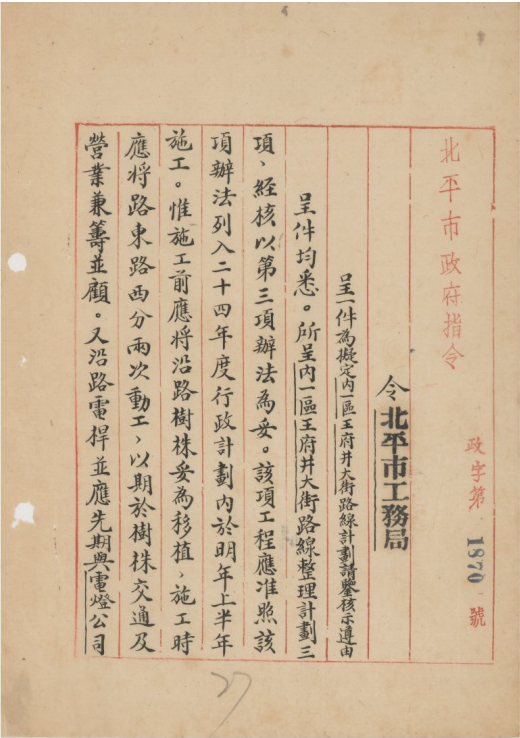 北平市政府指令
政字第1870號
令北平市工務局
呈一件為擬定內一區王府井大街路線計劃請鑒核示遵由
呈件均悉。所呈內一區王府井大街路線整理計劃三
項、經核以第三項辦法為妥。該項工程應准照該
項辦法列入二十四年度行政計劃內於明年上半年
施工。惟施工前應將沿路樹株妥為移植，施工時
應將路東路西分兩次動工，以期於樹株交通及
營業兼籌並顧。又沿路電桿並應先期與電燈公司
27